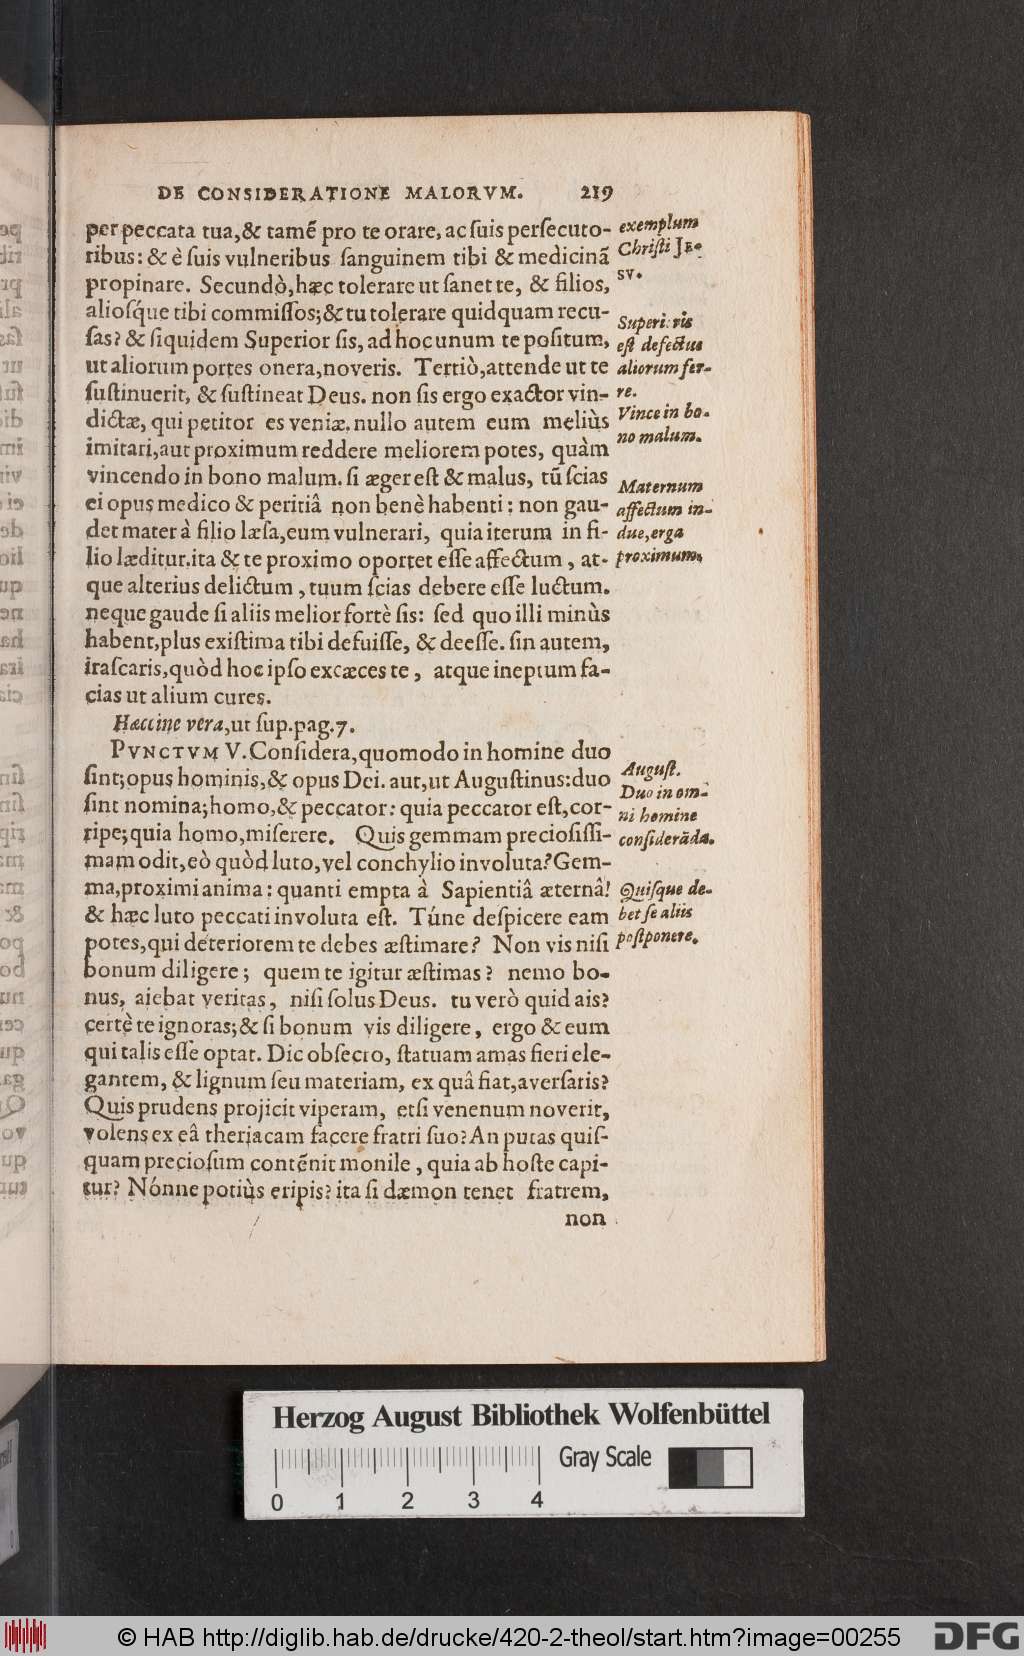 DE CONSIDERATIONE MALORVM. 219
per peccata tua,& tamẽ pro te orare, ac ſuis perſecuto-
ribus: & è ſuis vulneribus ſanguinem tibi & medicinã
propinare. Secundò, hæc tolerare ut ſanet te, & filios,
alioſq́ue tibi commiſſos;& tu tolerare quidquam recu-
ſas? & ſiquidem Superior ſis, ad hoc unum te poſitum,
ut aliorum portes onera, noveris. Tertiò, attende ut te
ſuſtinuerit, & ſuſtineat Deus. non ſis ergo exactor vin-
dictæ, qui petitor es veniæ. nullo autem eum meliùs
imitari, aut proximum reddere meliorem potes, quàm
vincendo in bono malum. ſi æger eſt & malus, tũ ſcias
ei opus medico & peritiâ non benè habenti: non gau-
det mater à filio læſa, eum vulnerari, quia iterum in fi-
lio læditur. ita & te proximo oportet eſſe affectum, at-
que alterius delictum, tuum ſcias debere eſſe luctum.
neque gaude ſi aliis melior fortè ſis: ſed quo illi minùs
habent, plus exiſtima tibi defuiſſe, & deeſſe. ſin autem,
iraſcaris, quòd hoc ipſo excæces te, atque ineptum fa-
cias ut alium cures.
Hæccine vera, ut ſup. pag. 7.
PVNCTVM V. Conſidera, quomodo in homine duo
ſint; opus hominis, & opus Dei. aut, ut Auguſtinus: duo
ſint nomina; homo, & peccator: quia peccator eſt, cor-
ripe; quia homo, miſerere. Quis gemmam precioſiſſi-
mam odit, eò quòd luto, vel conchylio involuta? Gem-
ma, proximi anima: quanti empta à Sapientiâ æternâ!
& hæc luto peccati involuta eſt. Túne deſpicere eam
potes, qui deteriorem te debes æſtimare? Non vis niſi
bonum diligere; quem te igitur æſtimas? nemo bo-
nus, aiebat veritas, niſi ſolus Deus. tu verò quid ais?
certè te ignoras; & ſi bonum vis diligere, ergo & eum
qui talis eſſe optat. Dic obſecro, ſtatuam amas fieri ele-
gantem, & lignum ſeu materiam, ex quâ fiat, averſaris?
Quis prudens projicit viperam, etſi venenum noverit,
volens ex eâ theriacam facere fratri ſuo? An putas quiſ-
quam precioſum contẽnit monile, quia ab hoſte capi-
tur? Nónne potiùs eripis? ita ſi dæmon tenet fratrem,
non
exemplum
Chriſti Je-
sv.
Superi. ris
eſt defectus
aliorum fer-
re.
Vince in bo-
no malum.
Maternum
affectum in-
due, erga
proximum.
Auguſt.
Duo in om-
ni homine
conſiderãda.
Quiſque de-
bet ſe aliis
poſtponere.
Herzog August Bibliothek Wolfenbüttel
Gray Scale
0 1 2 3 4
© HAB http://diglib.hab.de/drucke/420-2-theol/start.htm?image=00255
DFG